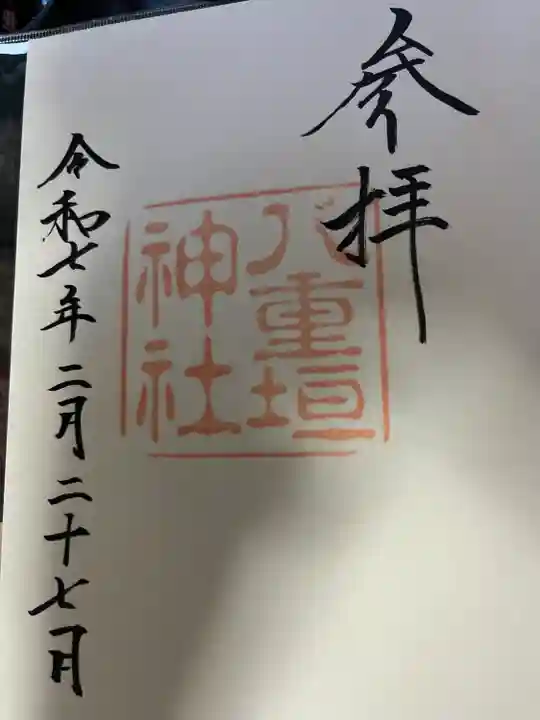 参拝
八重垣
神社
令和七年二月二十七日